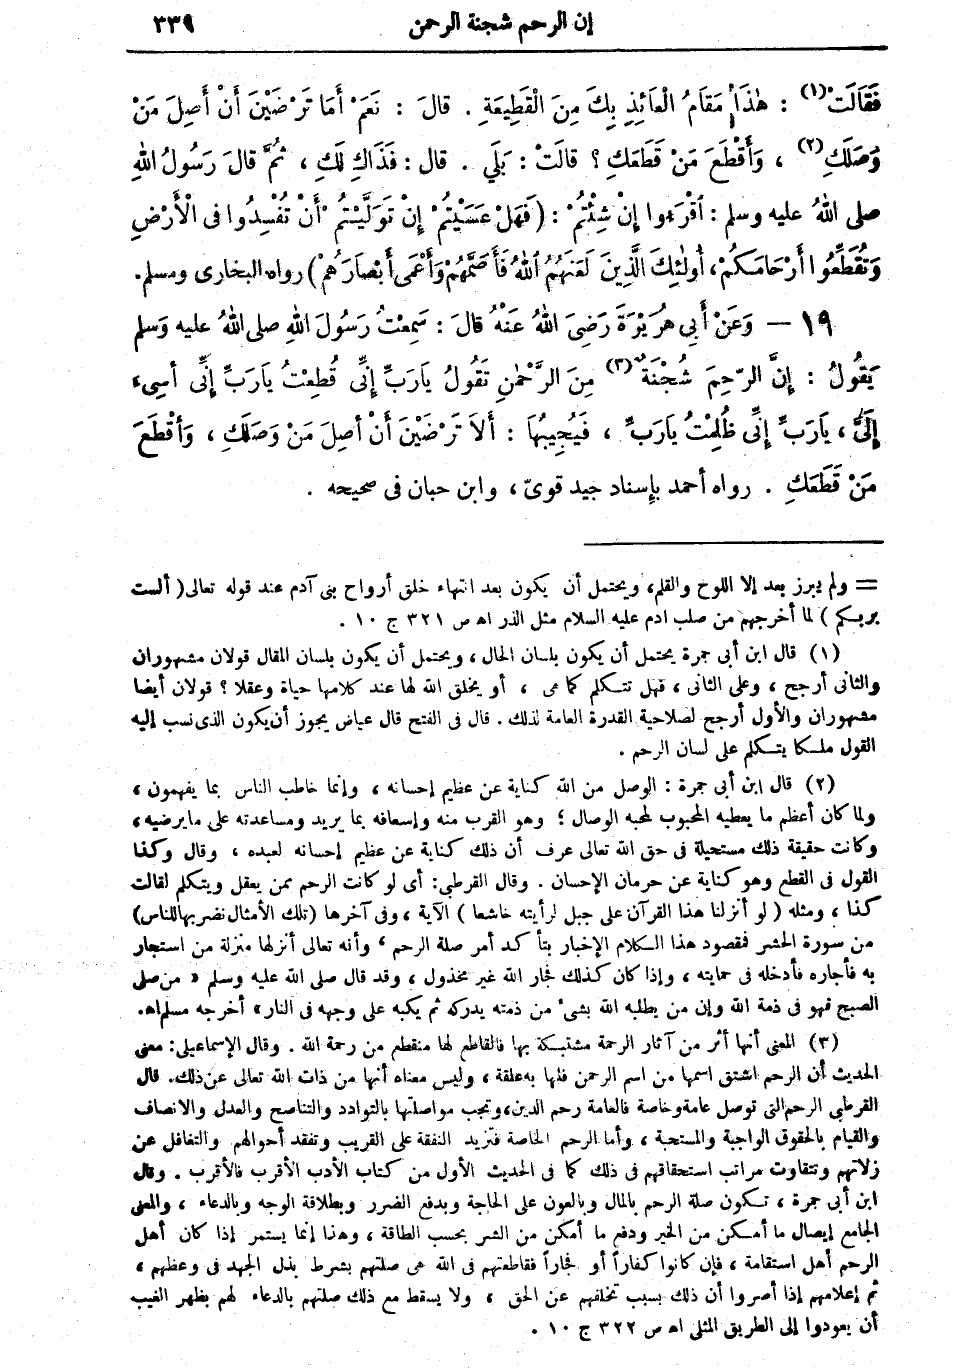 إن الرحم شجنة الرحمن ٣٣٩
فَقَالَتْ(١) : هٰذَا مَقَامُ الْعَائِذِ بِكَ مِنَ الْقَطِيعَةِ . قالَ : نَعَمْ أَمَا تَرْضَيْنَ أَنْ أَصِلَ مَنْ
وَصَلَكِ(٢) ، وَأَقْطَعَ مَنْ قَطَعَكِ ؟ قالَتْ : بَلَى . قال : فَذَاكِ لَكِ ، ثُمَّ قالَ رَسُولُ اللهِ
صلى اللهُ عليه وسلم : اقْرَءوا إِنْ شِئْتُمْ : ( فَهَلْ عَسَيْتُمْ إِنْ تَوَلَّيْتُمْ أَنْ تُفْسِدُوا فى الْأَرْضِ
وَتُقَطِّعُوا أَرْحَامَكُمْ ، أُولٰئِكَ الَّذِينَ لَعَنَهُمُ اللهُ فَأَصَمَّهُمْ وَأَعْمَى أَبْصَارَهُمْ ) رواه البخارى ومسلم.
١٩ — وَعَنْ أَبِى هُرَيْرَةَ رَضِىَ اللهُ عَنْهُ قالَ : سَمِعْتُ رَسُولَ اللهِ صلى اللهُ عليه وسلم
يَقُولُ : إِنَّ الرَّحِمَ شُجْنَةٌ(٣) مِنَ الرَّحْمٰنِ تَقُولُ يَارَبِّ إِنِّى قُطِعْتُ يَارَبِّ إِنِّى أُسِىءَ
إِلَىَّ ، يَارَبِّ إِنِّى ظُلِمْتُ يَارَبِّ ، فَيُجِيبُهَا : أَلَا تَرْضَيْنَ أَنْ أَصِلَ مَنْ وَصَلَكِ ، وَأَقْطَعَ
مَنْ قَطَعَكِ . رواه أحمد بإسناد جيد قوىّ ، وابن حبان فى صحيحه .
= ولم يبرز بعد إلا اللوح والقلم، ويحتمل أن يكون بعد انتهاء خلق أرواح بنى آدم عند قوله تعالى ( ألست
بربكم ) لما أخرجهم من صلب ادم عليه السلام مثل الذر اه ص ٣٢١ ج ١٠ .
(١) قال ابن أبى جمرة يحتمل أن يكون بلسان الحال ، ويحتمل أن يكون بلسان المقال قولان مشهوران
والثانى أرجح ، وعلى الثانى ، فهل تتكلم كما هى ، أو يخلق الله لها عند كلامها حياة وعقلا ؟ قولان أيضا
مشهوران والأول أرجح لصلاحية القدرة العامة لذلك . قال فى الفتح قال عياض يجوز أن يكون الذى نسب إليه
القول ملكا يتكلم على لسان الرحم .
(٢) قال ابن أبى جمرة : الوصل من الله كناية عن عظيم إحسانه ، وإنما خاطب الناس بما يفهمون ،
ولما كان أعظم ما يعطيه المحبوب لمحبه الوصال ؛ وهو القرب منه وإسعافه بما يريد ومساعدته على ما يرضيه ،
وكانت حقيقة ذلك مستحيلة فى حق الله تعالى عرف أن ذلك كناية عن عظيم إحسانه لعبده ، وقال وكذا
القول فى القطع وهو كناية عن حرمان الإحسان . وقال القرطبى : أى لو كانت الرحم ممن يعقل ويتكلم لقالت
كذا ، ومثله ( لو أنزلنا هذا القرآن على جبل لرأيته خاشعا ) الآية ، وفى آخرها ( تلك الأمثال نضربها للناس )
من سورة الحشر فمقصود هذا الكلام الإخبار بتأكد أمر صلة الرحم ، وأنه تعالى أنزلها منزلة من استجار
به فأجاره فأدخله فى حمايته ، وإذا كان كذلك فجار الله غير مخذول ، وقد قال صلى الله عليه وسلم « من صلى
الصبح فهو فى ذمة الله وإن من يطلبه الله بشىء من ذمته يدركه ثم يكبه على وجهه فى النار » أخرجه مسلم اه.
(٣) المعنى أنها أثر من آثار الرحمة مشتبكة بها فالقاطع لها منقطع من رحمة الله . وقال الإسماعيلى : معنى
الحديث أن الرحم اشتق اسمها من اسم الرحمن فلها به علقة ، وليس معناه أنها من ذات الله تعالى عن ذلك. قال
القرطبى الرحم التى توصل عامة وخاصة فالعامة رحم الدين، وتجب مواصلتها بالتوادد والتناصح والعدل والانصاف
والقيام بالحقوق الواجبة والمستحبة ، وأما الرحم الخاصة فتزيد النفقة على القريب وتفقد أحوالهم والتغافل عن
زلاتهم وتتفاوت مراتب استحقاقهم فى ذلك كما فى الحديث الأول من كتاب الأدب الأقرب فالأقرب . وقال
ابن أبى جمرة ، تكون صلة الرحم بالمال وبالعون على الحاجة وبدفع الضرر وبطلاقة الوجه وبالدعاء ، والمعنى
الجامع إيصال ما أمكن من الخير ودفع ما أمكن من الشر بحسب الطاقة ، وهذا إنما يستمر إذا كان أهل
الرحم أهل استقامة ، فإن كانوا كفاراً أو فجاراً فمقاطعتهم فى الله هى صلتهم بشرط بذل الجهد فى وعظهم ،
ثم إعلامهم إذا أصروا أن ذلك بسبب تخلفهم عن الحق ، ولا يسقط مع ذلك صلتهم بالدعاء لهم بظهر الغيب
أن يعودوا إلى الطريق المثلى اه ص ٣٢٢ ج ١٠ .